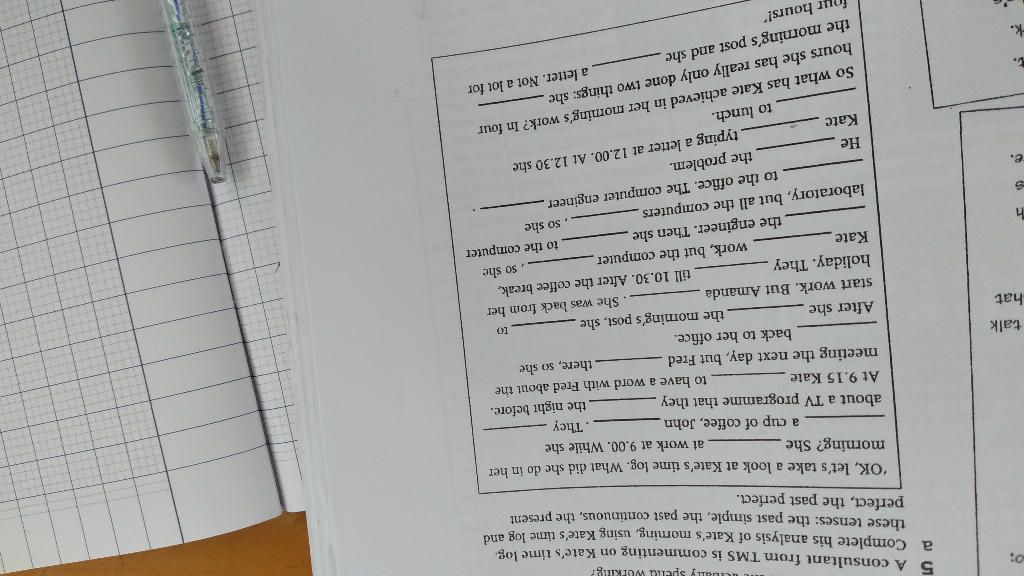 actually spend working?
5 A consultant from TMS is commenting on Kate's time log.
a Complete his analysis of Kate's morning, using Kate's time log and
these tenses: the past simple, the past continuous, the present
perfect, the past perfect.
'OK, let's take a look at Kate's time log. What did she do in her
morning? She ________ at work at 9.00. While she
________ a cup of coffee, John ________. They ________
about a TV programme that they ________ the night before.
At 9.15 Kate ________ to have a word with Fred about the
meeting the next day, but Fred ________ there, so she
________ back to her office.
After she ________ the morning's post, she ________ to
start work. But Amanda ________. She was back from her
holiday. They ________ till 10.30. After the coffee break,
Kate ________ work, but the computer ________, so she
________ the engineer. Then she ________ to the computer
laboratory, but all the computers ________, so she
________ to the office. The computer engineer ________.
He ________ the problem.
Kate ________ typing a letter at 12.00. At 12.30 she
________ to lunch.
So what has Kate achieved in her morning's work? In four
hours she has really only done two things: she ________
the morning's post and she ________ a letter. Not a lot for
four hours!'
talk
hat